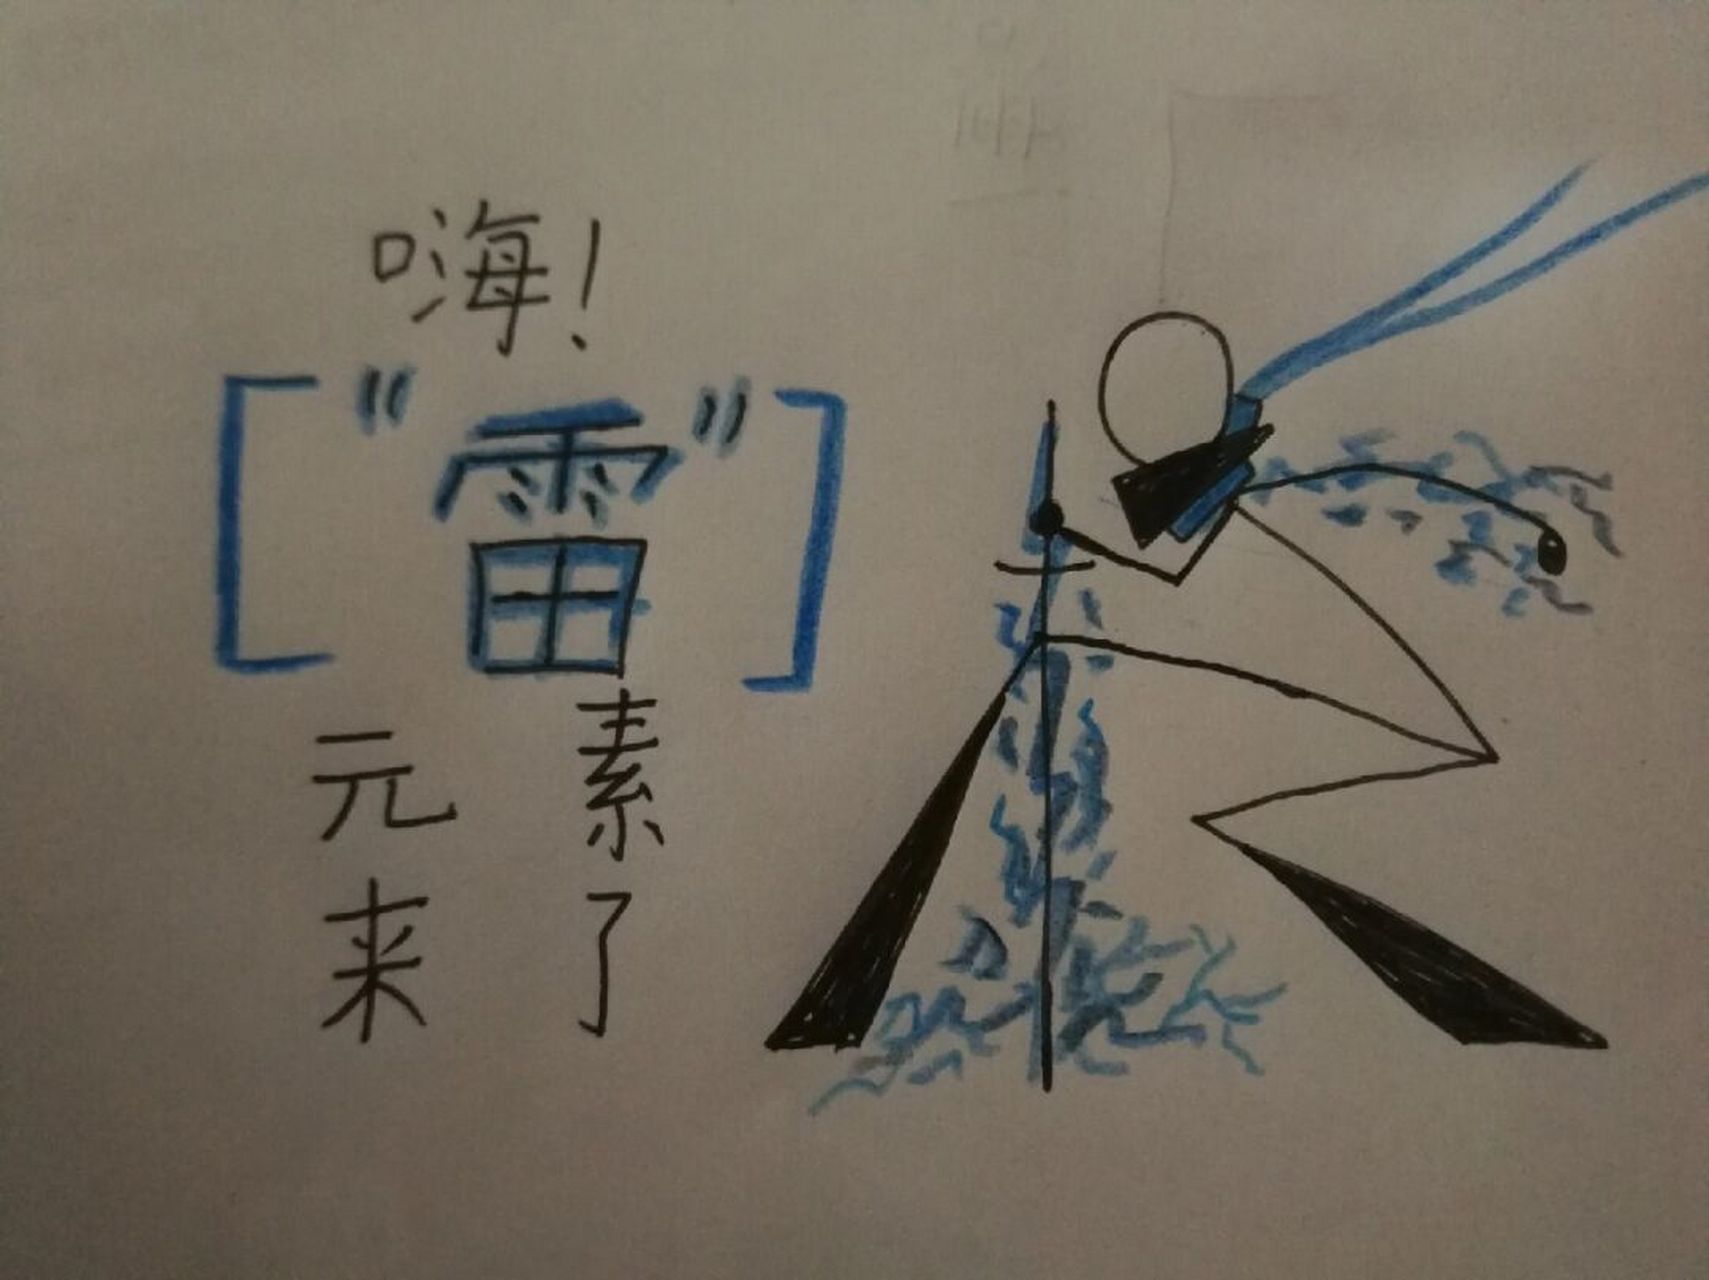 嗨！
["雷"]
元素
来了